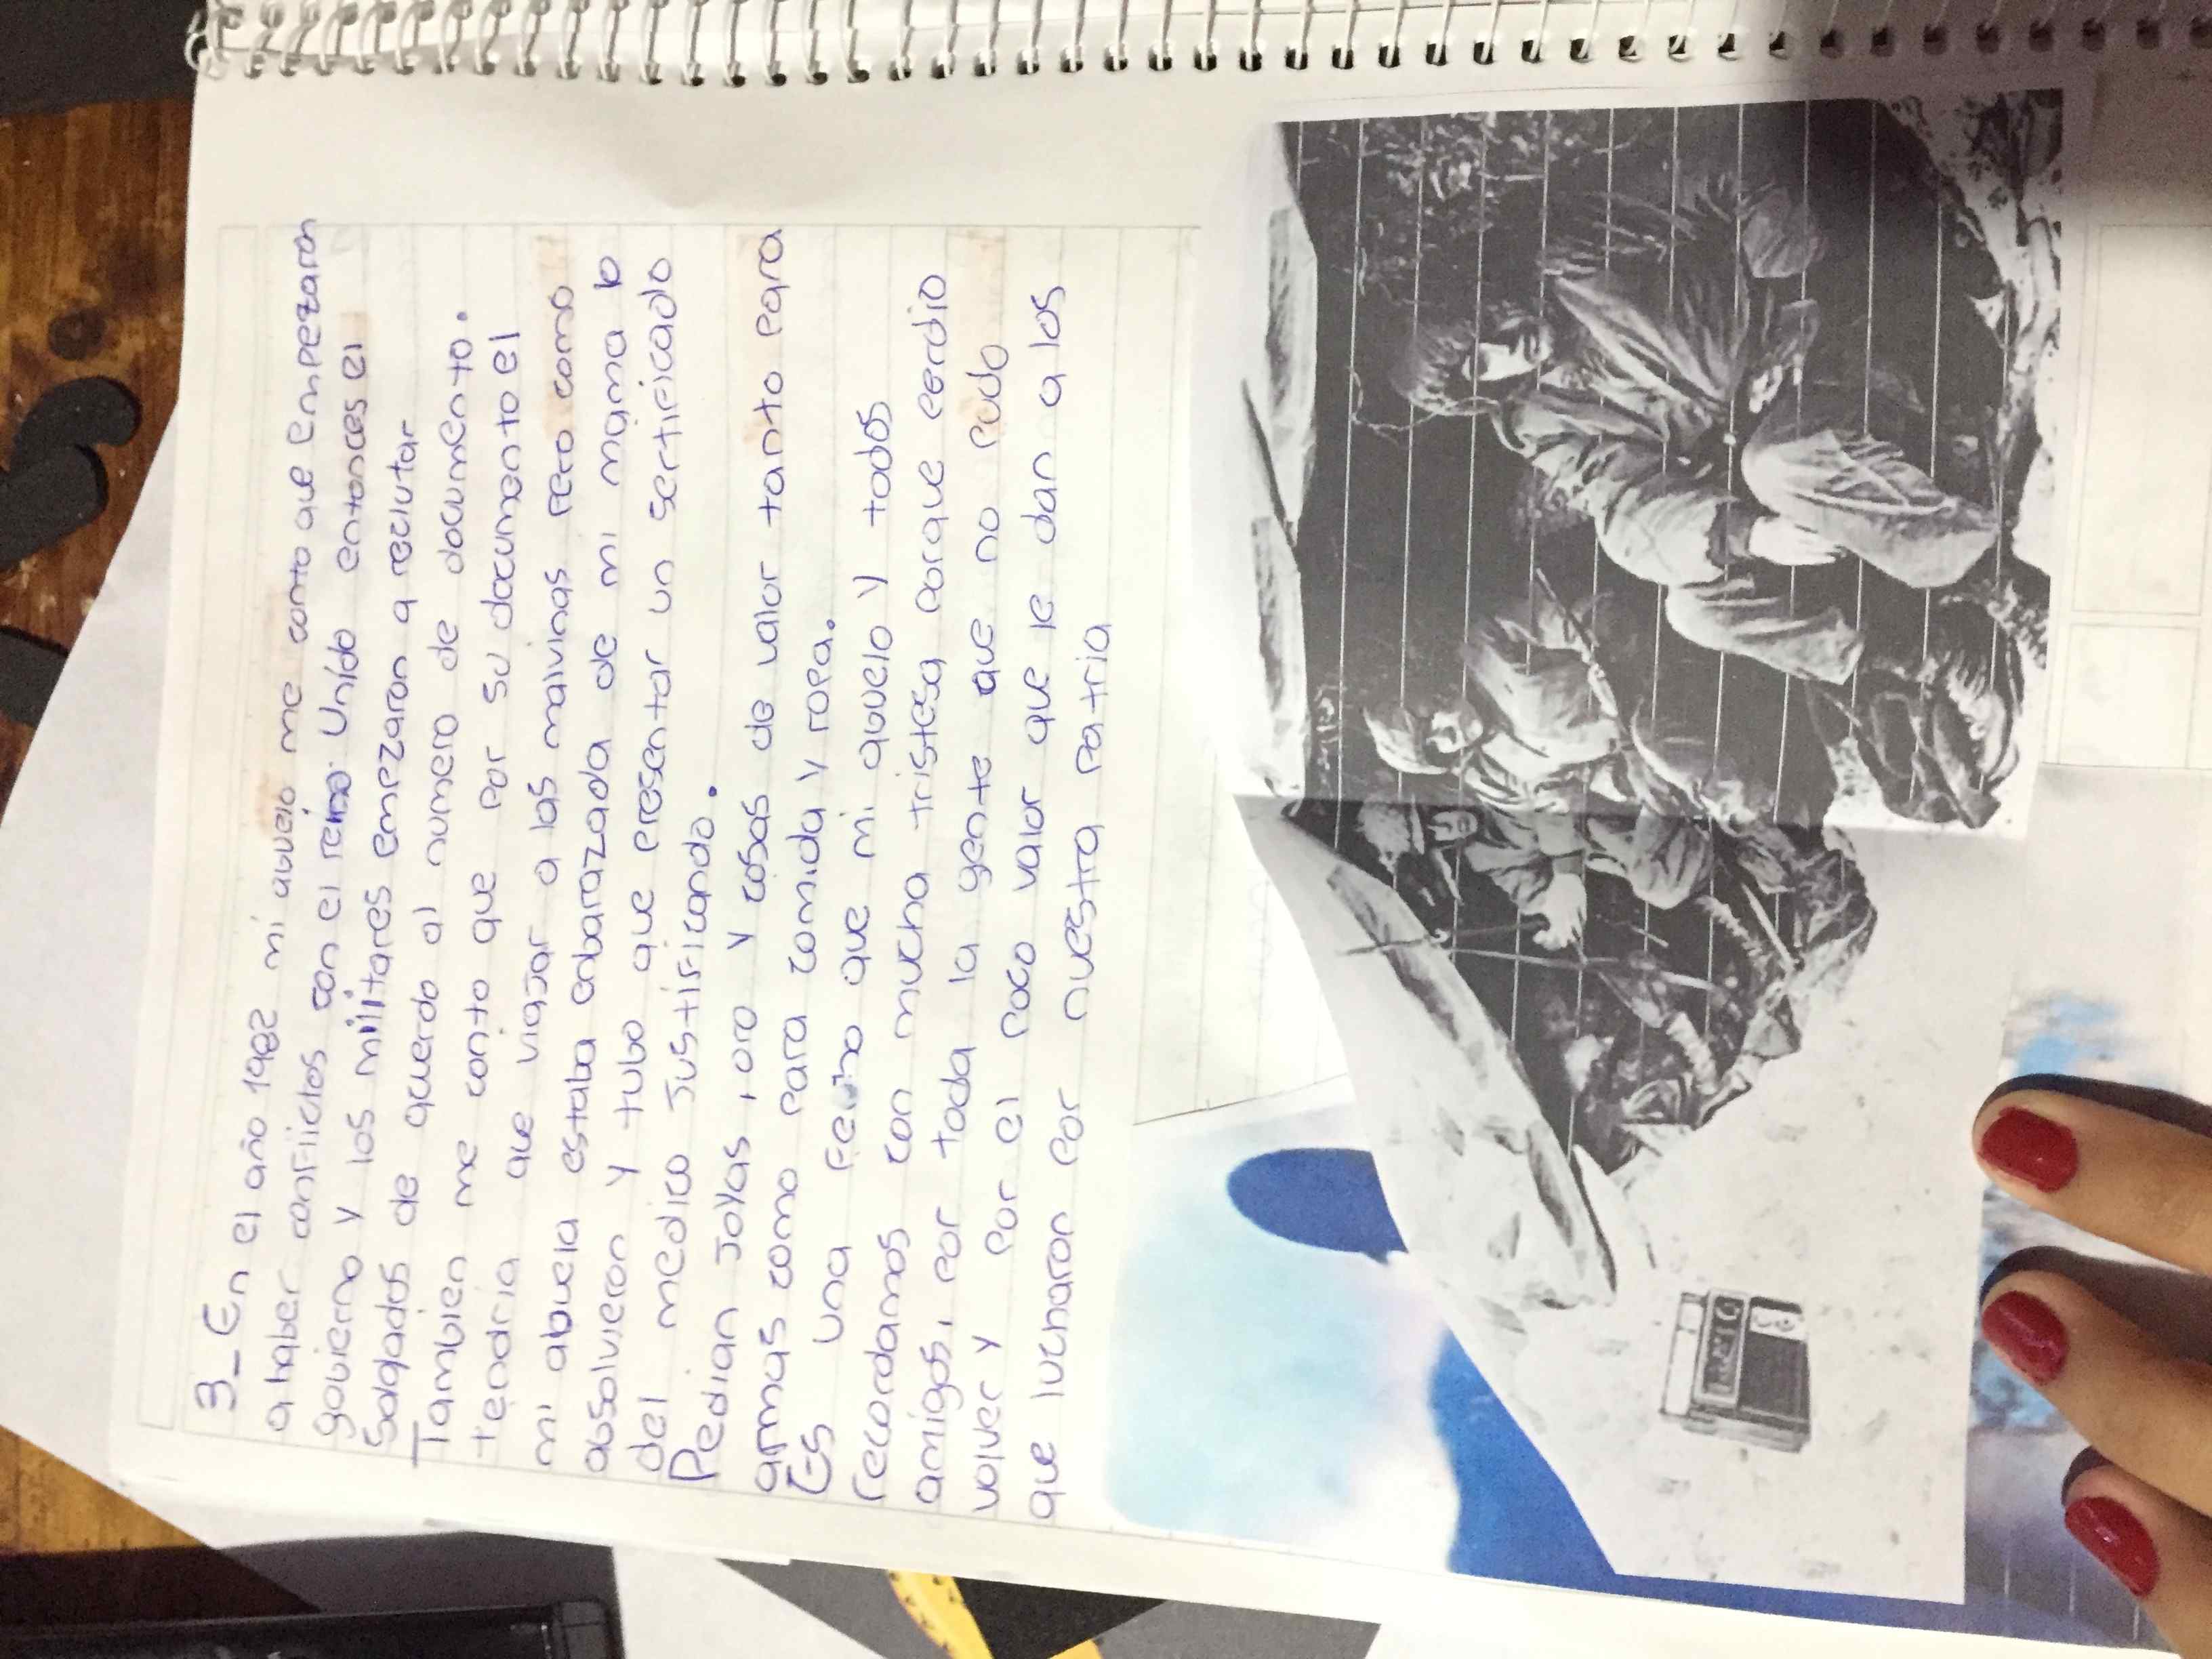 3_ En el año 1982 mi abuelo me conto que enpezaron
a haber conflictos con el reino Unido entonces el
govierno y los militares empezaron a reclutar
Soldados de acuerdo al numero de documento.
Tambien me conto que por su documento el
tendria que viajar a las malvinas pero como
mi abuela estaba enbarazada de mi mama lo
absolvieron y tubo que presentar un sertificado
del medico Justificando.
Pedian joyas, oro y cosas de valor tanto para
armas como para comida y ropa.
Es una fecha que mi abuelo y todos
recordamos con mucha tristesa porque perdio
amigos, por toda la gente que no pudo
volver y por el poco valor que le dan a los
que lucharon por nuestra patria